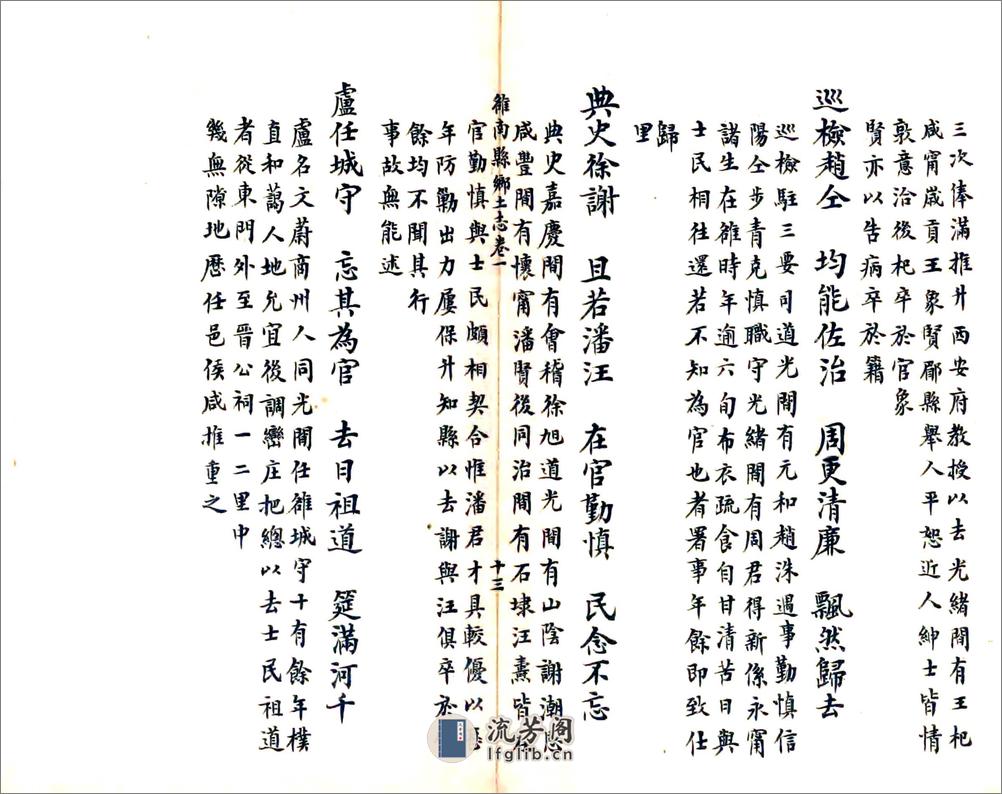 三次俸滿推升西安府教授以去光緒間有王杞
咸甯歲貢王象賢郿縣舉人平恕近人紳士皆情
敦意洽後杞卒於官象
賢亦以告病卒於籍
巡檢趙仝　均能佐治　周更清廉　飄然歸去
巡檢駐三要司道光間有元和趙洙遇事勤慎信
陽仝步青克慎職守光緒間有周君得新係永甯
諸生在雒時年逾六旬布衣疏食自甘清苦日與
士民相往還若不知為官也者署事年餘即致仕
歸
里
典史徐謝　且若潘汪　在官勤慎　民念不忘
典史嘉慶間有會稽徐旭道光間有山陰謝潮
咸豐間有懷甯潘賢後同治間有石埭汪熹皆
雒南縣鄉土志卷一
十三
官勤慎與士民頗相契合惟潘君才具較優以
年防勦出力屢保升知縣以去謝與汪俱卒於
餘均不聞其行
事故無能述
盧任城守　忘其為官　去日祖道　筵滿河干
盧名文蔚商州人同光間任雒城守十有餘年樸
直和藹人地允宜後調巒庄把總以去士民祖道
者從東門外至晉公祠一二里中
幾無隙地歷任邑侯咸推重之
流芳阁
lfglib.cn